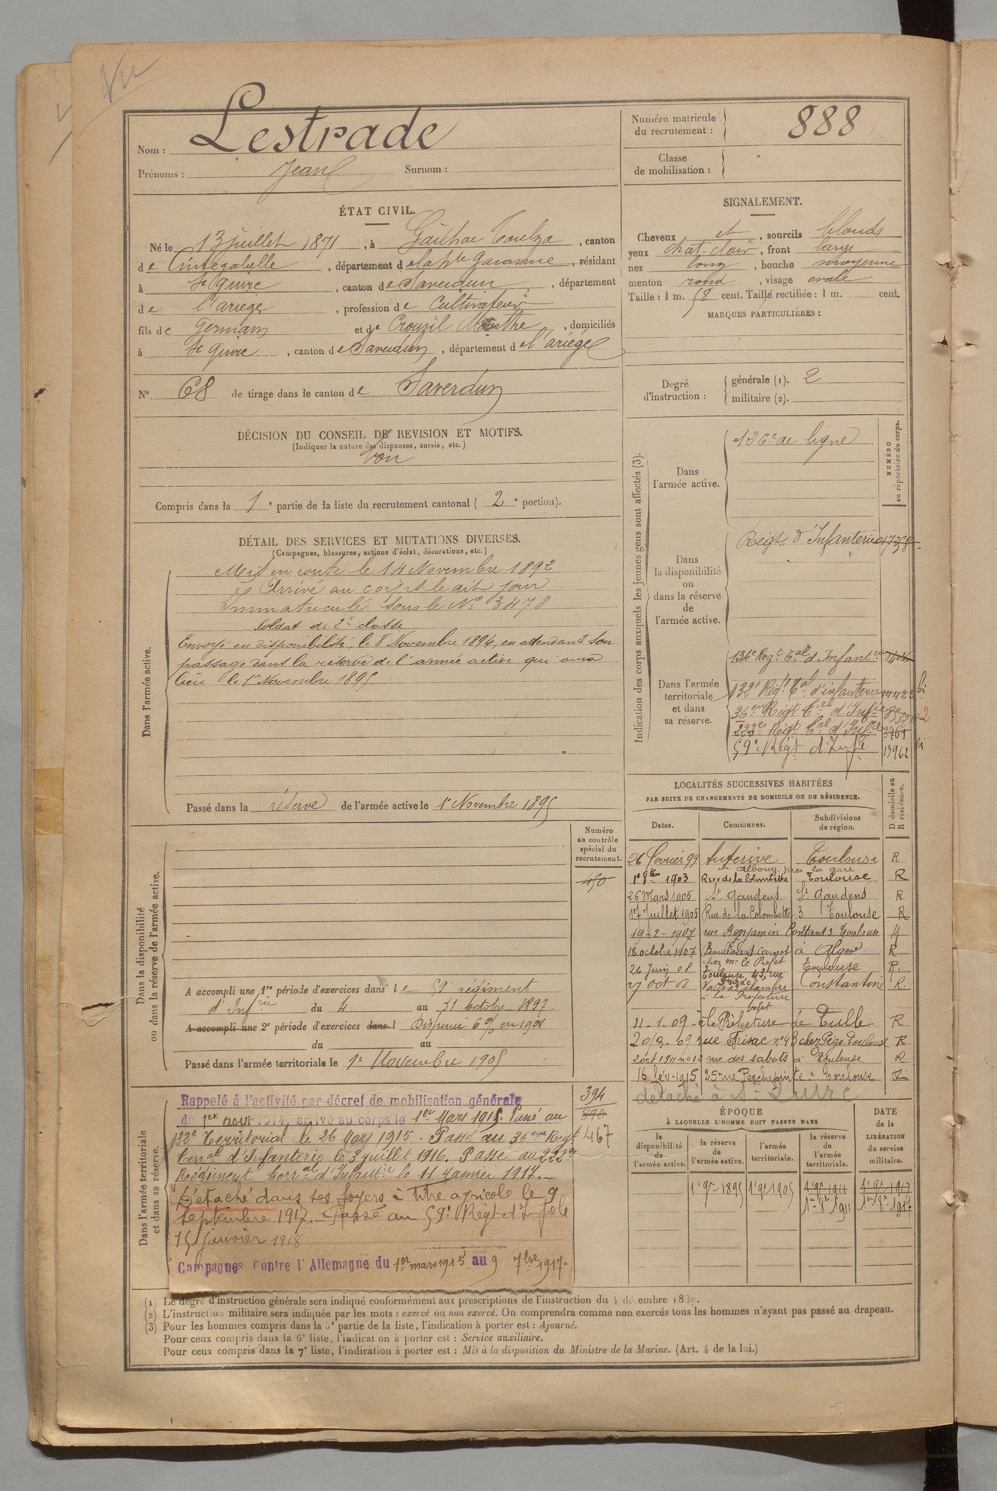 Nom : Lestrade
Prénoms : Jean Surnom :
Numéro matricule du recrutement : 888
Classe de mobilisation :
ÉTAT CIVIL.
Né le 13 juillet 1871, à Gailhac Toulza, canton
de Cintegabelle, département de la hte Garonne, résidant
à St Quirc, canton de Saverdun, département
de l'ariège, profession de Cultivateur
fils de Germain et de Crouzil Marthe, domiciliés
à St Quirc, canton de Saverdun, département de l'ariège
N° 68 de tirage dans le canton de Saverdun
SIGNALEMENT.
Cheveux et, sourcils blonds
yeux chat. clair, front large
nez long, bouche moyenne
menton rond, visage ovale
Taille : 1 m. 58 cent. Taille rectifiée : 1 m. cent.
MARQUES PARTICULIÈRES :
Degré d'instruction : générale (1). 2
militaire (2).
DÉCISION DU CONSEIL DE REVISION ET MOTIFS.
(Indiquer la nature des dispenses, sursis, etc.)
Bon
Compris dans la 1e partie de la liste du recrutement cantonal (2e portion).
DÉTAIL DES SERVICES ET MUTATIONS DIVERSES.
(Campagnes, blessures, actions d'éclat, décorations, etc.)
Dans l'armée active.
Mis en route le 14 Novembre 1892
Arrivé au corps le dit jour
Immatriculé sous le N° 3478
Soldat de 2e classe
Envoyé en disponibilité, le 8 Novembre 1894, en attendant son
passage dans la réserve de l'armée active qui aura
lieu le 1er Novembre 1895
Passé dans la réserve de l'armée active le 1er Novembre 1895
Indication des corps auxquels les jeunes gens sont affectés (3).
NUMÉRO au répertoire du corps.
Dans l'armée active.
126e de ligne
Dans la disponibilité ou dans la réserve de l'armée active.
Regt d'Infanterie
Dans l'armée territoriale et dans sa réserve.
134e Regt Tal d'Infanterie
132e Regt Tal d'infanterie
36eme Regt Tal d'Infie
222e Regt Tal d'Infie 3761
59e Regt d'Infie 13962
LOCALITÉS SUCCESSIVES HABITÉES
PAR SUITE DE CHANGEMENTS DE DOMICILE OU DE RÉSIDENCE.
Dates. Communes. Subdivisions de région. D domicile ou R résidence.
26 février 99 Auterive Toulouse R
1e 8bre 1903 Rue de la Colombette Toulouse R
26 Mars 1905 St Gaudens St Gaudens R
17 Juillet 1905 Rue de la Colombette 3 Toulouse R
19-2-1907 rue Benjamin Constant 3 Toulouse R
18 octobre 1907 Boulevard Carnot à Alger R
26 Juin 08 Toulouse 43, rue Toulouse R
27 oct 08 à la Préfecture Constantine R
11-1-09 à la Préfecture de Tulle R
20/3-09 rue Frisac n°4 Toulouse R
2 oct 1911 rue des sabots à Toulouse R
16 fév. 1915 25 rue Perchepinte Toulouse R
détaché à St Quirc
Dans la disponibilité ou dans la réserve de l'armée active.
Numéro au contrôle spécial du recrutement.
450
A accompli une 1re période d'exercices dans le 59 régiment
d'Infrie du 4 au 31 octobre 1897
A accompli une 2e période d'exercices dans l Dispensé en 1901
du au
Passé dans l'armée territoriale le 1er Novembre 1905
Dans l'armée territoriale et dans sa réserve.
Rappelé à l'activité par décret de mobilisation générale
du 1er aout 1914, arrivé au corps le 1er Mars 1915. Passé au
132e Territorial le 26 Mars 1915. Passé au 36eme Regt
Terral d'Infanterie le 3 juillet 1916. Passé au 222e
Régiment Territal d'Infantie le 11 Janvier 1917.
Détaché dans ses foyers à titre agricole le 9
septembre 1917. Passé au 59e Regt d'Infie le
15 janvier 1918
Campagnes contre l'Allemagne du 1er mars 1915 au 9 7bre 1917.
394
467
ÉPOQUE
À LAQUELLE L'HOMME DOIT PASSER DANS
la disponibilité de l'armée active. la réserve de l'armée active. l'armée territoriale. la réserve de l'armée territoriale.
DATE DE LA LIBÉRATION du service militaire.
1er 9bre 1895 1er 9bre 1905 1er 9bre 1911 1er 9bre 1917
1er 8bre 1911 1er 8bre 1917
(1) Le degré d'instruction générale sera indiqué conformément aux prescriptions de l'instruction du 4 décembre 1889.
(2) L'instruction militaire sera indiquée par les mots : exercé ou non exercé. On comprendra comme non exercés tous les hommes n'ayant pas passé au drapeau.
(3) Pour les hommes compris dans la 5e partie de la liste, l'indication à porter est : Ajourné.
Pour ceux compris dans la 6e liste, l'indication à porter est : Service auxiliaire.
Pour ceux compris dans la 7e liste, l'indication à porter est : Mis à la disposition du Ministre de la Marine. (Art. 4 de la loi.)